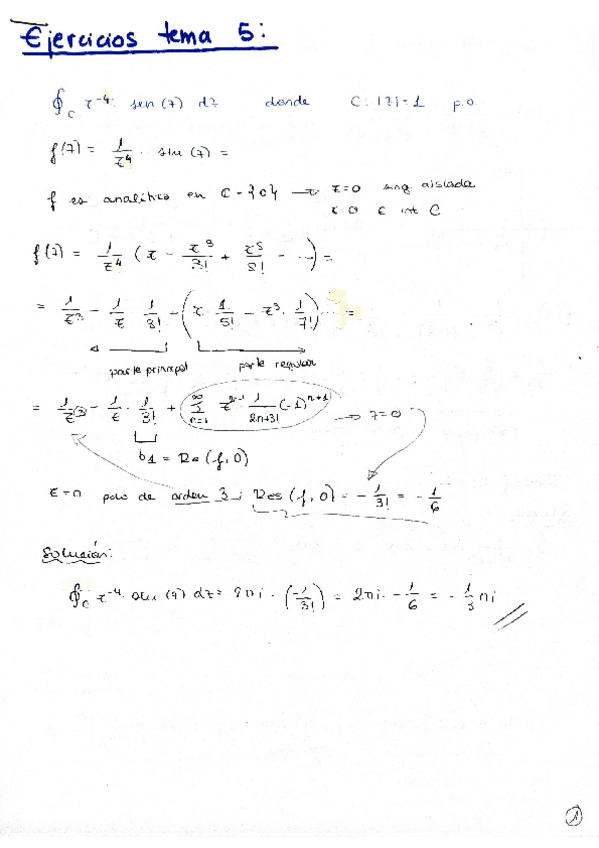 Ejercicios tema 5:
∮_C z^-4 · sen(z) dz donde C: |z|=1 p.o.
f(z) = 1/z^4 · sen(z) =
f es analítica en C-{0} → z=0 sing. aislada
z=0 ∈ int C
f(z) = 1/z^4 (z - z^3/3! + z^5/5! - ...) =
= 1/z^3 - 1/z · 1/3! + (z · 1/5! - z^3 · 1/7!) ... =
parte principal parte regular
= 1/z^3 - 1/z · 1/3! + ∑_{n=1}^∞ z^{2n-1} 1/2n+3! (-1)^{n+1} → z=0
b1 = Re(f,0)
polo de orden 3 ; Res(f,0) = -1/3! = -1/6
Solución:
∮_C z^-4 · sen(z) dz = 2πi · (-1/3!) = 2πi · -1/6 = -1/3 πi
1